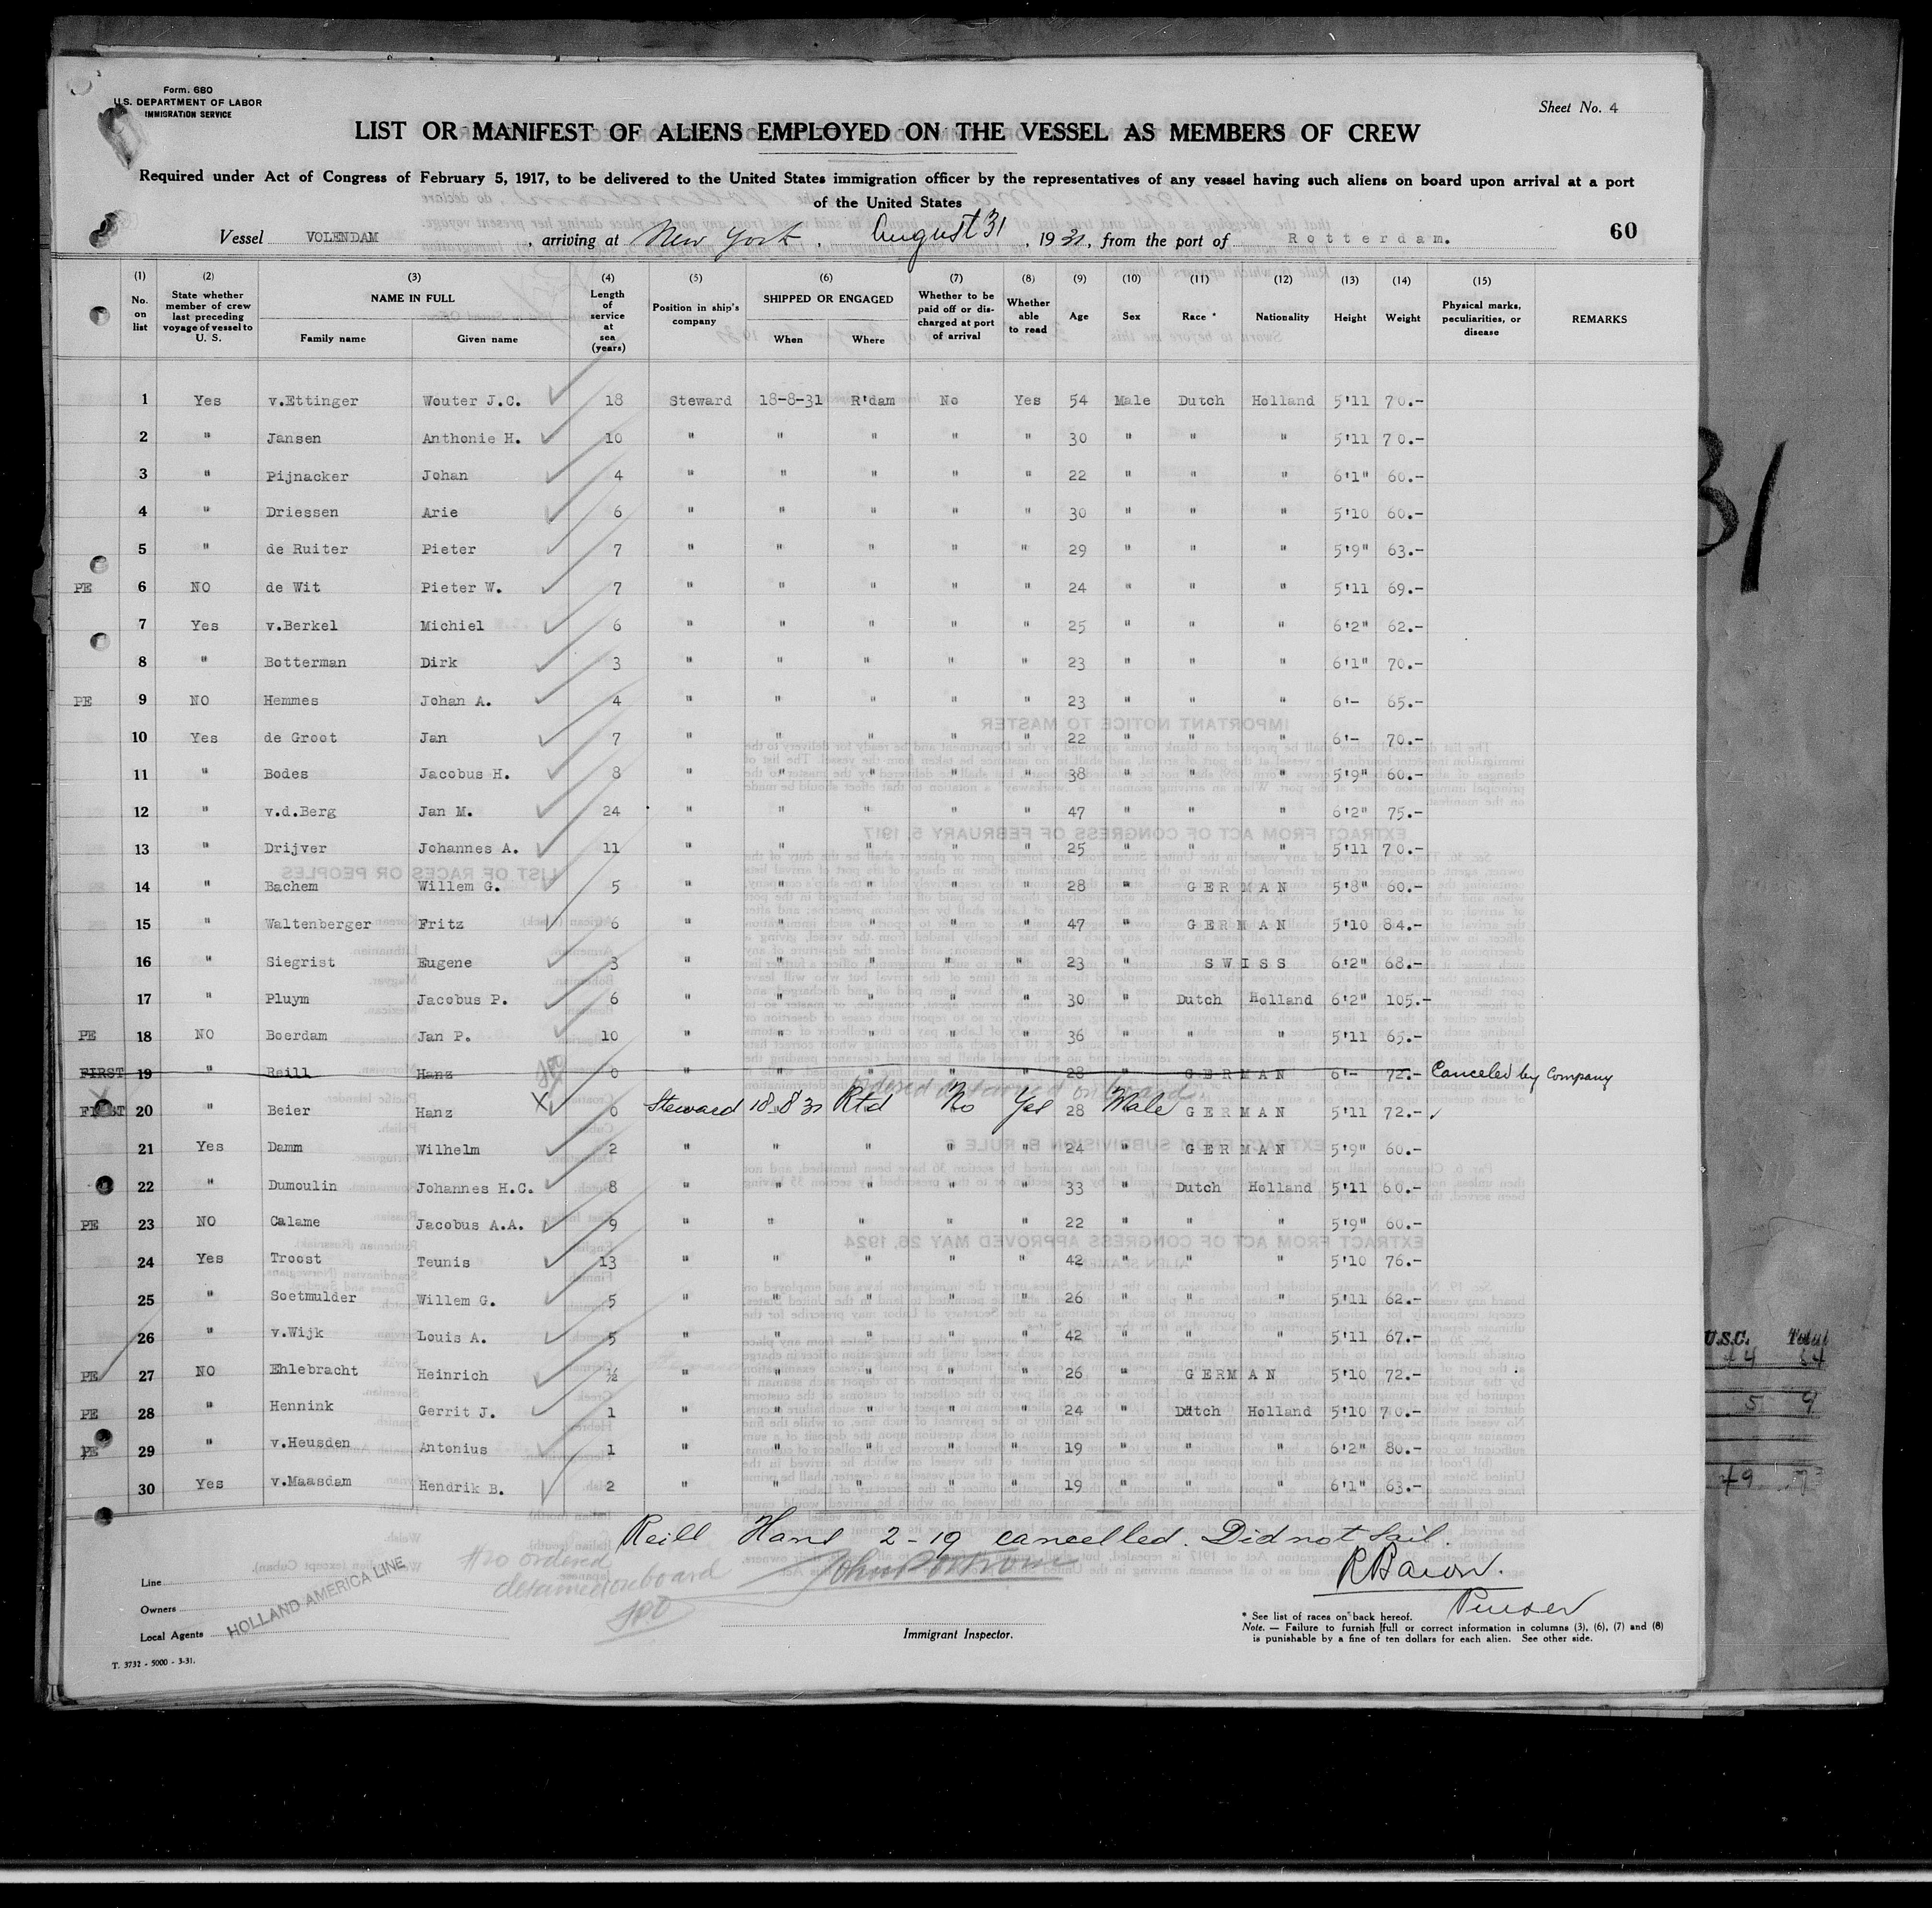 Form. 680
U.S. DEPARTMENT OF LABOR
IMMIGRATION SERVICE
Sheet No. 4
LIST OR MANIFEST OF ALIENS EMPLOYED ON THE VESSEL AS MEMBERS OF CREW
Required under Act of Congress of February 5, 1917, to be delivered to the United States immigration officer by the representatives of any vessel having such aliens on board upon arrival at a port
of the United States
Vessel VOLENDAM, arriving at New York, August 31, 1931, from the port of Rotterdam. 60
(1) No. on list (2) State whether member of crew last preceding voyage of vessel to U. S. (3) NAME IN FULL Family name Given name (4) Length of service at sea (years) (5) Position in ship's company (6) SHIPPED OR ENGAGED When Where (7) Whether to be paid off or discharged at port of arrival (8) Whether able to read (9) Age (10) Sex (11) Race * (12) Nationality (13) Height (14) Weight (15) Physical marks, peculiarities, or disease REMARKS
1 Yes v.Ettinger Wouter J.C. 18 Steward 18-8-31 R'dam No Yes 54 Male Dutch Holland 5'11 70.-
2 " Jansen Anthonie H. 10 " " " " " 30 " " " 5'11 70.-
3 " Pijnacker Johan 4 " " " " " 22 " " " 6'1" 60.-
4 " Driessen Arie 6 " " " " " 30 " " " 5'10 60.-
5 " de Ruiter Pieter 7 " " " " " 29 " " " 5'9" 63.-
PE 6 NO de Wit Pieter W. 7 " " " " " 24 " " " 5'11 69.-
7 Yes v.Berkel Michiel 6 " " " " " 25 " " " 6'2" 62.-
8 " Botterman Dirk 3 " " " " " 23 " " " 6'1" 70.-
PE 9 NO Hemmes Johan A. 4 " " " " " 23 " " " 6'- 65.-
10 Yes de Groot Jan 7 " " " " " 22 " " " 6'- 70.-
11 " Bodes Jacobus H. 8 " " " " " 38 " " " 5'9" 60.-
12 " v.d.Berg Jan M. 24 " " " " " 47 " " " 6'2" 75.-
13 " Drijver Johannes A. 11 " " " " " 25 " " " 5'11 70.-
14 " Bachem Willem G. 5 " " " " " 28 " GERMAN 5'8" 60.-
15 " Waltenberger Fritz 6 " " " " " 47 " GERMAN 5'10 84.-
16 " Siegrist Eugene 3 " " " " " 23 " SWISS 6'2" 68.-
17 " Pluym Jacobus P. 6 " " " " " 30 " Dutch Holland 6'2" 105.-
PE 18 NO Boerdam Jan P. 10 " " " " " 36 " " " 5'11 65.-
FIRST 19 " Reill Hanz 0 " " " " " 28 " GERMAN 6'- 72.- Canceled by Company
ordered detained on board.
FIRST 20 " Beier Hanz X 0 Steward 18 8 31 Rtd No Yes 28 Male GERMAN 5'11 72.-
21 Yes Damm Wilhelm 2 " " " " " 24 " GERMAN 5'9" 60.-
22 " Dumoulin Johannes H.C. 8 " " " " " 33 " Dutch Holland 5'11 60.-
PE 23 NO Calame Jacobus A.A. 9 " " " " " 22 " " " 5'9" 60.-
24 Yes Troost Teunis 13 " " " " " 42 " " " 5'10 76.-
25 " Soetmulder Willem G. 5 " " " " " 26 " " " 5'11 62.-
26 " v.Wijk Louis A. 5 " " " " " 42 " " " 5'11 67.-
PE 27 NO Ehlebracht Heinrich ½ " " " " " 26 " GERMAN 5'10 72.-
PE 28 " Hennink Gerrit J. 1 " " " " " 24 " Dutch Holland 5'10 70.-
PE 29 " v.Heusden Antonius 1 " " " " " 19 " " " 6'2" 80.-
30 Yes v.Maasdam Hendrik B. 2 " " " " " 19 " " " 6'1" 63.-
Reill Hans 2-19 cancelled. Did not sail.
#20 ordered
detained on board
Purser
Line
Owners
Local Agents
HOLLAND AMERICA LINE
Immigrant Inspector.
* See list of races on back hereof.
Note. — Failure to furnish full or correct information in columns (3), (6), (7) and (8)
is punishable by a fine of ten dollars for each alien. See other side.
T. 3732 - 5000 - 3-31.
31
U.S.C. Total